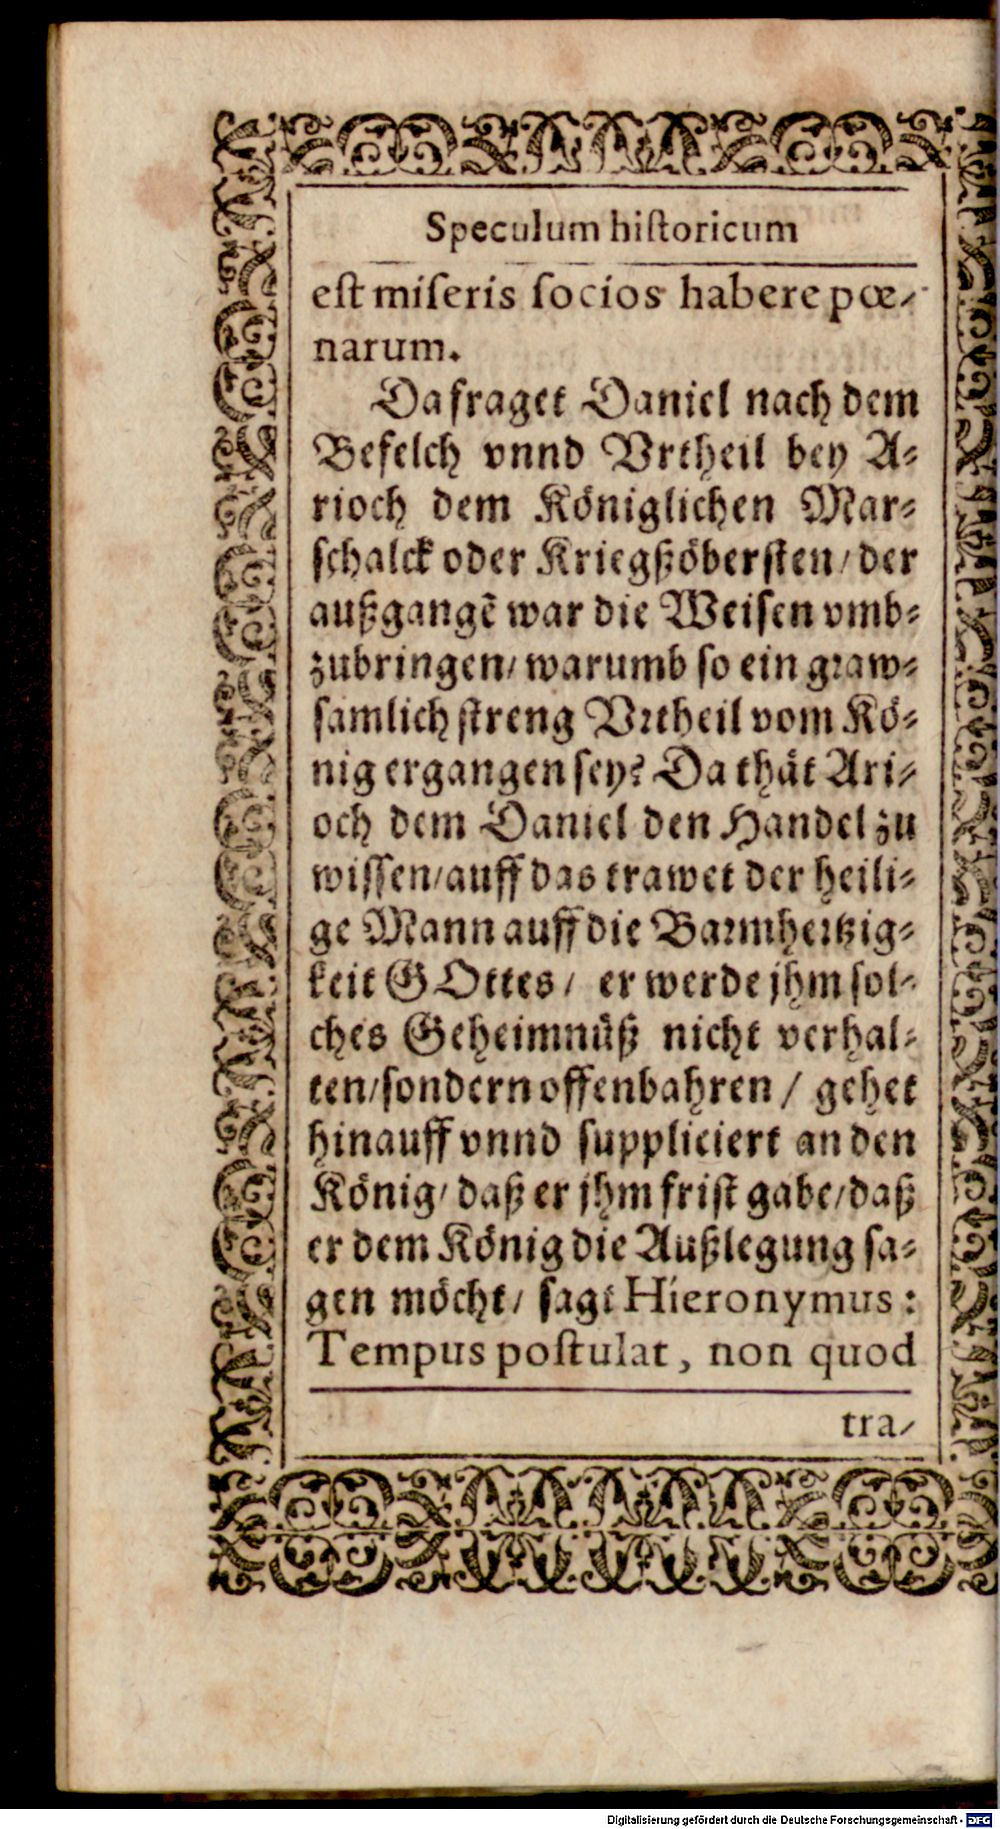 Speculum hiſtoricum
eſt miſeris ſocios habere pœ-
narum.
Da fraget Daniel nach dem
Befelch vnnd Vrtheil bey A-
rioch dem Königlichen Mar-
ſchalck oder Kriegßöberſten/ der
außgangē war die Weiſen vmb-
zubringen/ warumb ſo ein graw-
ſamlich ſtreng Vrtheil vom Kö-
nig ergangen ſey? Da thät Ari-
och dem Daniel den Handel zu
wiſſen/ auff das trawet der heili-
ge Mann auff die Barmhertzig-
keit GOttes/ er werde jhm ſol-
ches Geheimnüß nicht verhal-
ten/ ſondern offenbahren / gehet
hinauff vnnd ſuppliciert an den
König/ daß er jhm friſt gabe/ daß
er dem König die Außlegung ſa-
gen möcht/ ſagt Hieronymus :
Tempus poſtulat, non quod
tra-
Digitalisierung gefördert durch die Deutsche Forschungsgemeinschaft - DFG